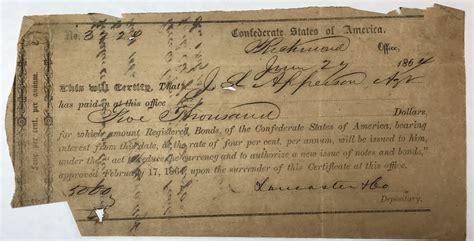 Confederate States of America.
No. 328
Richmond Office,
June 27 1864
This will Certify, That J L Apperson Agt
has paid in at this office
Five Thousand Dollars,
for which amount Registered Bonds, of the Confederate States of America, bearing
interest from this date, at the rate of four per cent. per annum, will be issued to him,
under the "act to reduce the currency and to authorize a new issue of notes and bonds,"
approved February 17, 1864, upon the surrender of this Certificate at this office.
5000 Lancaster & Co
Depositary.
Four per cent. per annum.